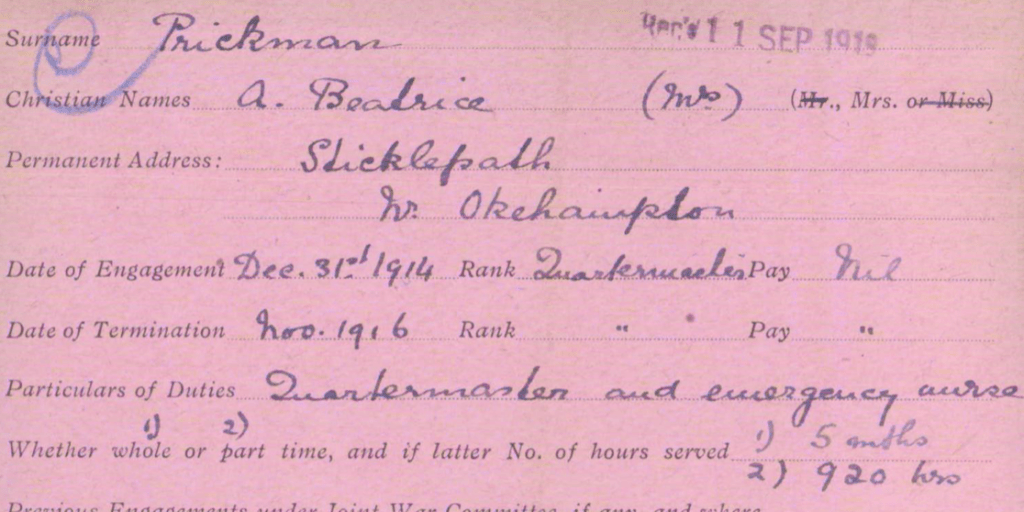 Surname Prickman Rec'd 11 SEP 1919
Christian Names A. Beatrice (Mrs) (Mr., Mrs. or Miss)
Permanent Address: Sticklepath
Nr. Okehampton
Date of Engagement Dec. 31st 1914 Rank Quartermaster Pay Nil
Date of Termination Nov. 1916 Rank " Pay "
Particulars of Duties Quartermaster and emergency nurse
1) 2)
Whether whole or part time, and if latter No. of hours served 1) 5 mths
2) 920 hrs
Previous Engagements under Joint War Committee, if any, and where